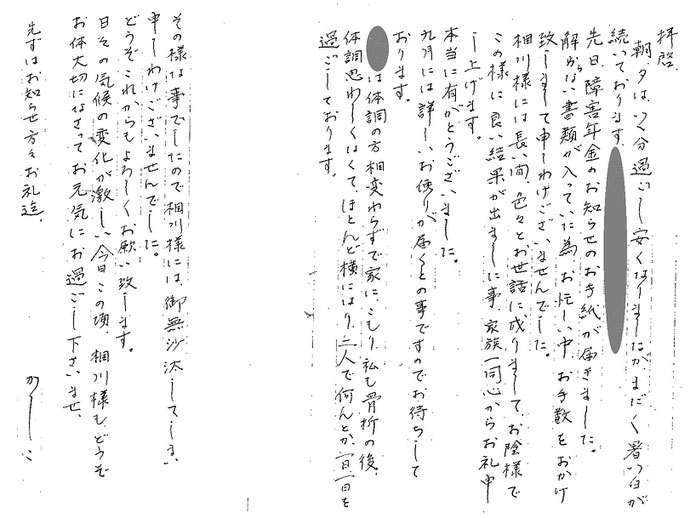 拝啓、
朝、夕は、いく分過ごし安くなりましたがまだまだ暑い日が
続いております。
先日、障害年金のお知らせのお手紙が届きました。
解らない書類が入っていた為、お忙しい中、お手数をおかけ
致しまして申しわけございませんでした。
相川様には長い間、色々とお世話に成りまして、お陰様で
この様に良い結果が出ました事、家族一同心からお礼申
し上げます。
本当に有がとうございました。
九月には詳しいお便りが届くとの事ですのでお待ちして
おります。
は体調の方相変わらずで家に、こもり私も骨折の後、
体調思わしくなくて、ほとんど横になり、二人で何んとか一日一日を
過ごしております。
その様な事でしたので相川様には、御無沙汰してしまい
申しわけございませんでした。
どうぞこれからもよろしくお願い致します。
日々の気候の変化が激しい今日この頃、相川様も、どうぞ
お体大切になさってお元気にお過ごし下さいませ、
先ずはお知らせ方々お礼迄、
かしこ